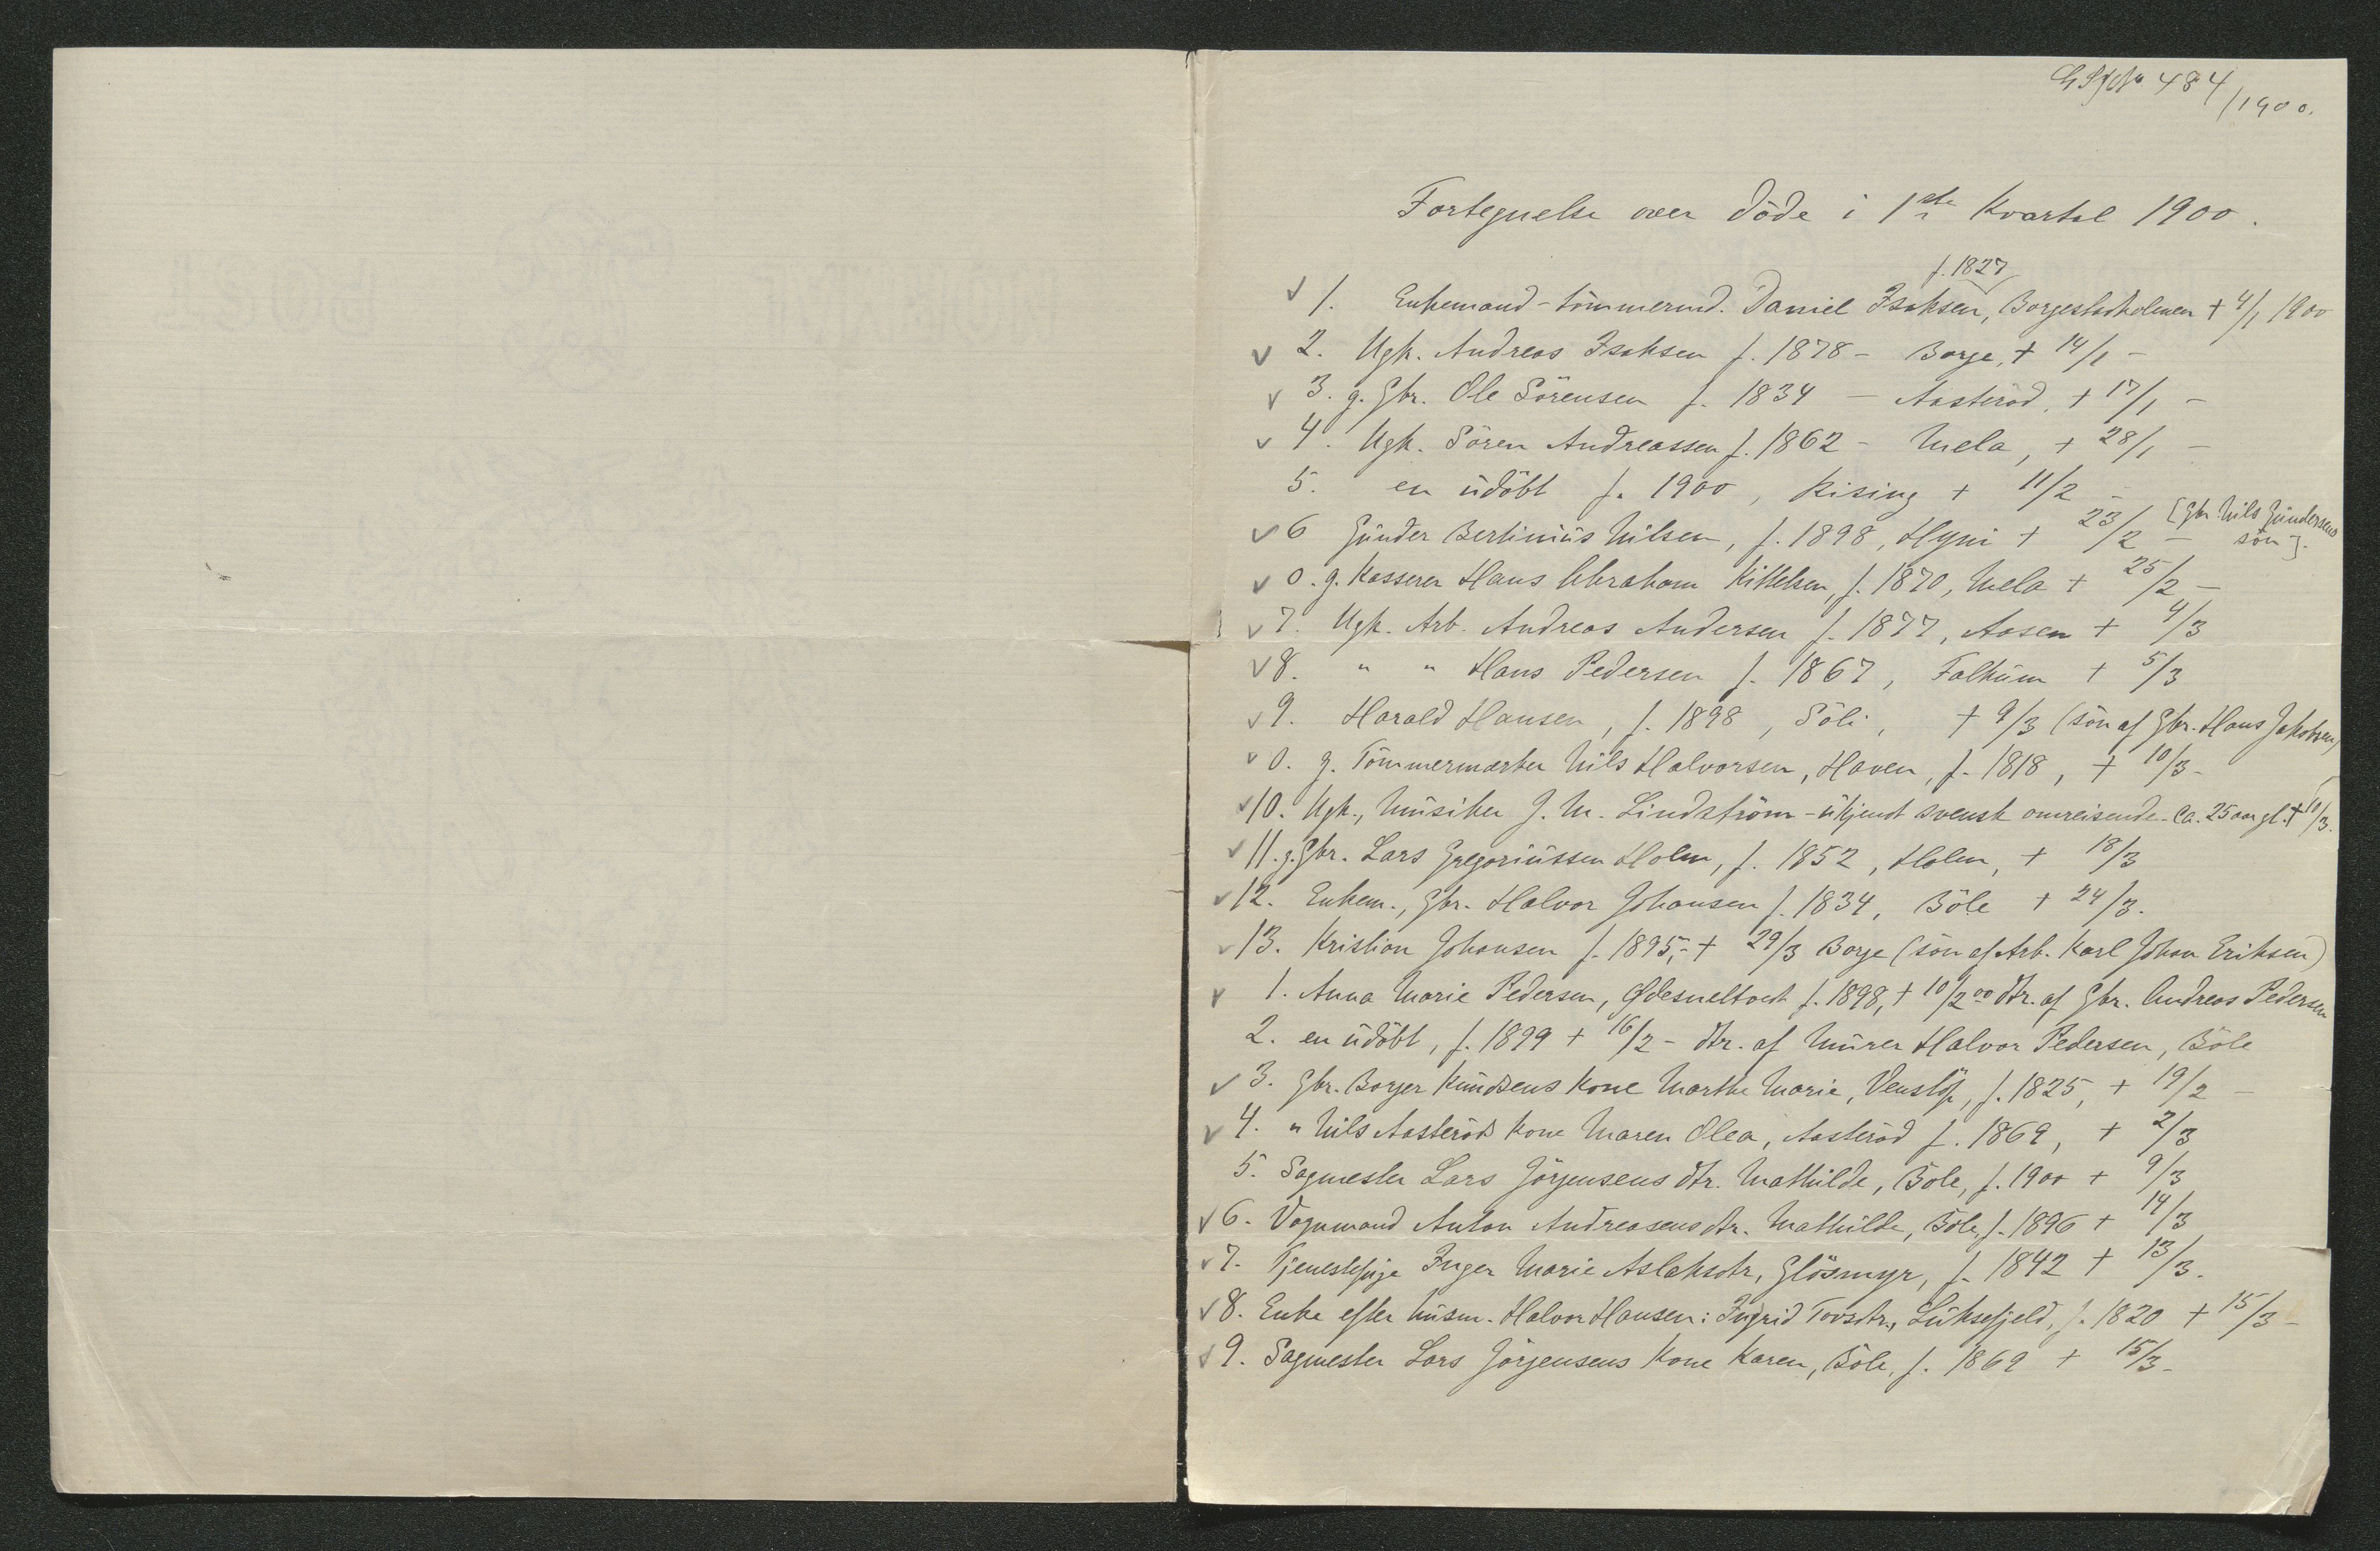 484/1900.
Fortegnelse over døde i 1ste Kvartal 1900.
f. 1827
√ 1. Enkemand - tömmermd. Daniel Isaksen, Borgestadholmen + 4/1 1900
√ 2. Ugk. Andreas Isaksen f. 1878 - Borge, + 14/1 -
√ 3. g. Gbr. Ole Sörensen f. 1834 - Aasteröd, + 17/1 -
√ 4. Ugk. Sören Andreassen f. 1862 - Mela, + 28/1 -
5. en üdöbt f. 1900, Rising + 11/2 -
√ 6 Günder Bertiniüs Nilsen, f. 1898, Hyni + 23/2 - [Gbr. Nils Gündersens sön].
√ 0. g. Kasserer Hans Abraham Kittelsen, f. 1870, Mela + 25/2 -
√ 7. Ugk. Arb. Andreas Andersen f. 1877, Aasen + 4/3
√ 8. " " Hans Pedersen f. 1867, Falküm + 5/3
√ 9. Harald Hansen, f. 1898, Söli, + 9/3 (sön af Gbr. Hans Jakobsen)
√ 0. g. Tömmermester Nils Halvorsen, Haven, f. 1818, + 10/3 -
√ 10. Ugk., Müsiker J. M. Lindström - ükjendt svensk omreisende - ca. 25 aar gl. + 10/3.
√ 11. g. Gbr. Lars Gregoriüssen Holm, f. 1852, Holm, + 18/3
√ 12. Enkem., Gbr. Halvor Johansen f. 1834, Böle + 24/3.
√ 13. Kristian Johansen f. 1895, - + 29/3 Borge (sön af Arb. Karl Johan Eriksen)
√ 1. Anna Marie Pedersen, Ødesneltvedt f. 1898, + 10/2 00 dtr. af Gbr. Andreas Pedersen
2. en üdöbt, f. 1899 + 16/2 - dtr. af Mürer Halvor Pedersen, Böle
√ 3. Gbr. Borger Knüdsens Kone Marthe Marie, Venslöp, f. 1825, + 19/2 -
√ 4. " Nils Aasteröds Kone Maren Olea, Aasteröd f. 1869, + 2/3
5. Sagmester Lars Jörgensens dtr. Mathilde, Böle, f. 1900 + 9/3
√ 6. Vognmand Anton Andreasens dtr. Mathilde, Böle, f. 1896 + 14/3
√ 7. Tjenestepige Inger Marie Aslaksdtr, Glösmyr, f. 1842 + 13/3.
√ 8. Enke efter hüsm. Halvor Hansen: Ingrid Torsdtr., Lüksefjeld, f. 1820 + 15/3 -
√ 9. Sagmester Lars Jörgensens Kone Karen, Böle, f. 1869 + 15/3 -